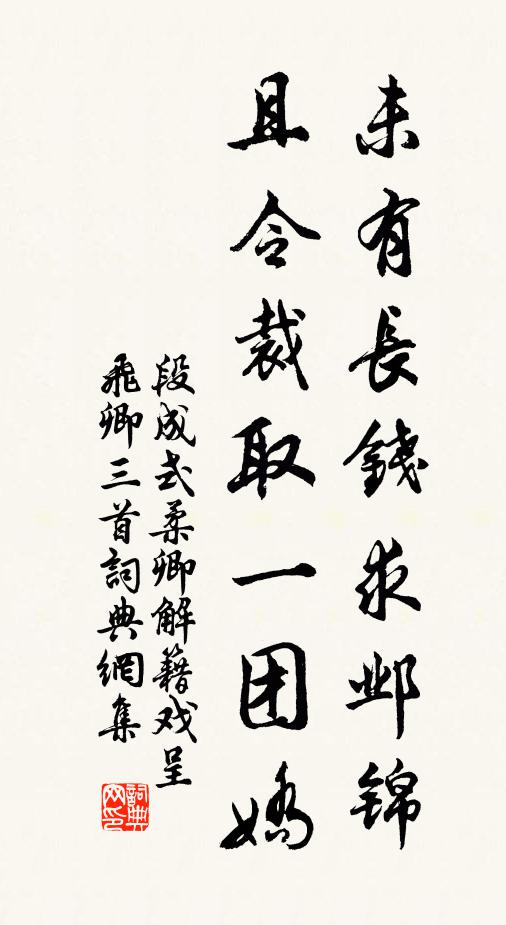 未有長錢求邺錦
且令裁取一团嬌
段成式柔卿解籍戏呈
飛卿三首詞典網集
詞典网印